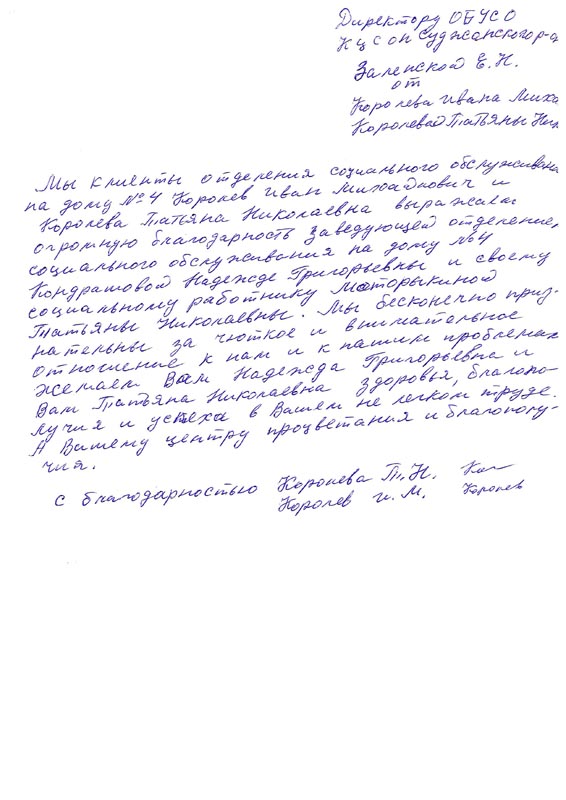 Директору ОБУСО
КЦСОН Суджанского р-а
Заленской Е.Н.
от
Королева Ивана Миха
Королевой Татьяны Ник
Мы клиенты отделения социального обслуживания
на дому №4 Королев Иван Михайлович и
Королева Татьяна Николаевна выражаем
огромную благодарность заведующей отделение,
социального обслуживания на дому №4
Кондрашовой Надежде Григорьевны и своему
социальному работнику Маторыкиной
Татьяны Николаевны. Мы бесконечно приз-
нательны за чюткое и внимательное
отношение к нам и к нашим проблемах
желаем Вам Надежда Григорьевна и
Вам Татьяна Николаевна здоровья, благопо-
лучия и успеха в Вашем не легком труде.
А Вашему центру процветания и благополу-
чия.
С благодарностью Королева Т.Н.
Королев И.М. Королев